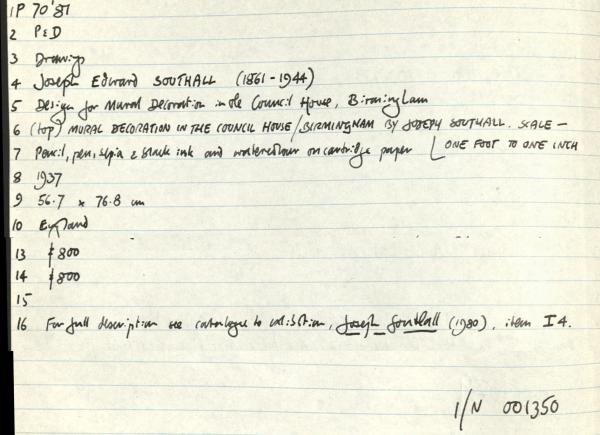 1P 70'81
2 P&D
3 Drawings
4 Joseph Edward SOUTHALL (1861-1944)
5 Design for Mural Decoration in the Council House, Birmingham
6 (top) MURAL DECORATION IN THE COUNCIL HOUSE/BIRMINGHAM BY JOSEPH SOUTHALL. SCALE -
ONE FOOT TO ONE INCH
7 Pencil, pen, sepia & black ink and watercolour on cartridge paper
8 1937
9 56.7 x 76.8 cm
10 England
13 £800
14 £800
15
16 For full description see catalogue to exhibition, Joseph Southall (1980), item I4.
I/N 001350